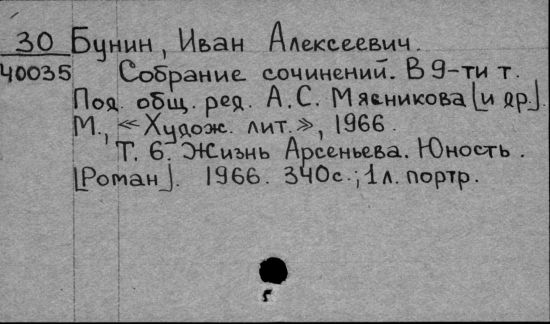 30 Бунин, Иван Алексеевич.
40035 Собрание сочинений. В 9-ти т.
Под. общ. ред. А.С. Мясникова [и др.].
М., «Худож. лит.», 1966.
Т. 6. Жизнь Арсеньева. Юность.
[Роман]. 1966. 340с.; 1л. портр.